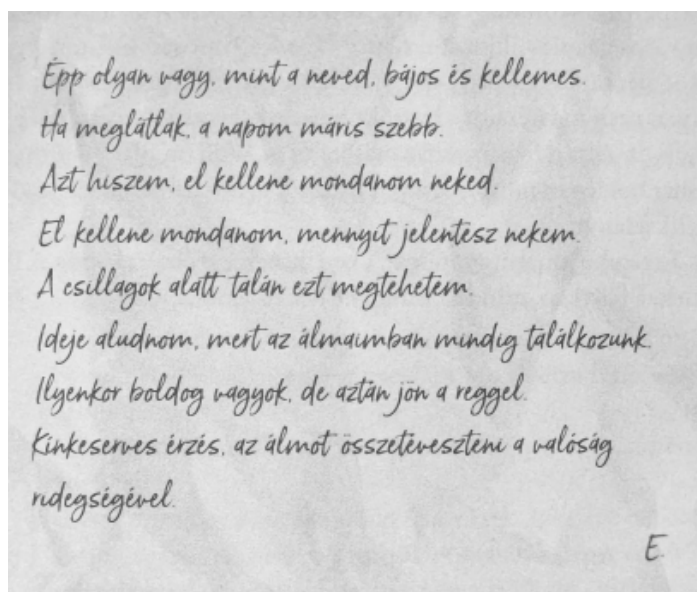 Épp olyan vagy, mint a neved, bájos és kellemes.
Ha meglátlak, a napom máris szebb.
Azt hiszem, el kellene mondanom neked.
El kellene mondanom, mennyit jelentesz nekem.
A csillagok alatt talán ezt megtehetem.
Ideje aludnom, mert az álmaimban mindig találkozunk.
Ilyenkor boldog vagyok, de aztán jön a reggel.
Kínkeserves érzés, az álmot összetéveszteni a valóság
ridegségével.
E